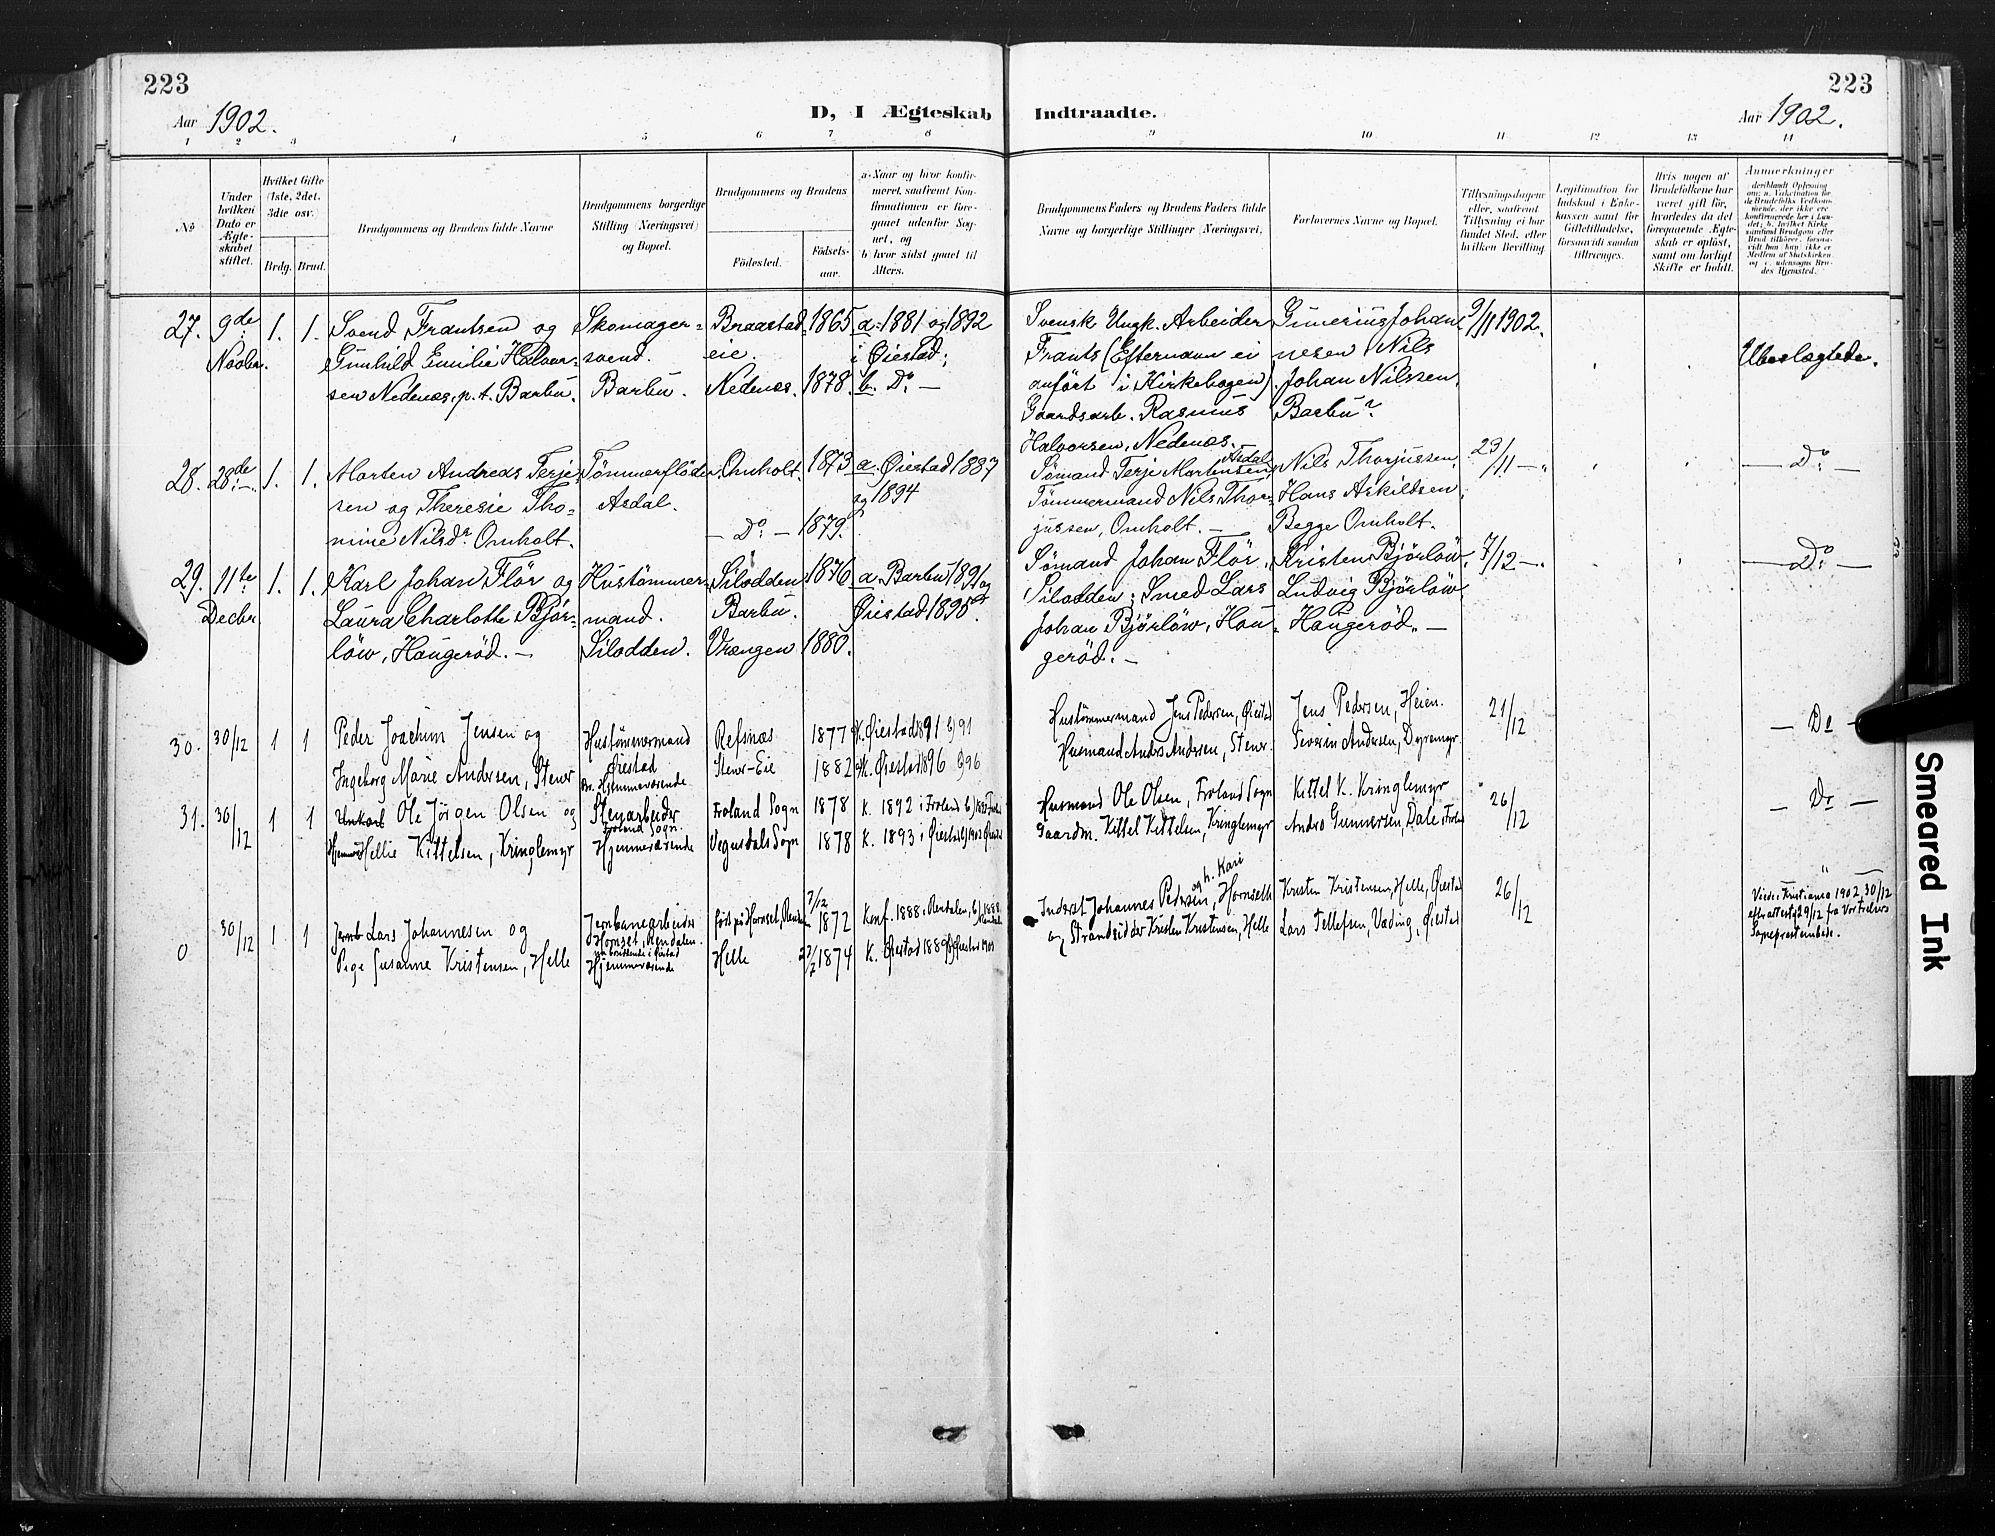 223
223
Aar 1902.
D, I Ægteskab Indtraadte.
Aar 1902.
1 2 3 4 5 6 7 8 9 10 11 12 13 14
No
Under hvilken Dato er Ægteskabet stiftet.
Hvilket Gifte (1ste, 2det, 3die osv.)
Brdg. Brud.
Brudgommens og Brudens fulde Navne
Brudgommens borgerlige Stilling (Næringsvei) og Bopæl.
Brudgommens og Brudens
Fødested.
Fødselsaar.
a. Naar og hvor konfirmeret, saafremt Konfirmationen er foregaaet udenfor Sognet, og
b. hvor sidst gaaet til Alters.
Brudgommens Faders og Brudens Faders fulde Navne og borgerlige Stillinger (Næringsvei.
Forlovernes Navne og Bopæl.
Tillysningsdagene eller, saafremt Tillysning ei har fundet Sted, efter hvilken Bevilling
Legitimation for Indskud i Enkekassen samt for Giftetilladelse, forsaavidt saadan tiltrænges.
Hvis nogen af Brudefolkene har været gift før, hvorledes da det foregaaende Ægteskab er opløst, samt om lovligt Skifte er holdt.
Anmerkninger
27. 9de Novbr. 1. 1.
Svend Frantsen og
Gunhild Emilie Halvor-
sen Nedenæs, p.t. Barbu.
Skomager-
svend.
Barbu.
Braastad-
eie.
Nedenæs.
1865
1878.
a. 1881 og 1892
i Øiestad;
b. Do. —
Svensk Ungk. Arbeider
Frants (Efternavn ei
anført i Kirkebogen).
Gaardsarb. Rasmus
Halvorsen, Nedenæs.
Gunerius Johan-
nesen Nils
Johan Nilssen,
Barbu
9/11 1902.
Ubeslægtede.
28. 28de — 1. 1.
Morten Andreas Terje-
sen og Theresie Tho-
mine Nilsdr Omholt.
Tømmerfløder,
Asdal.
Omholt.
— Do. —
1873
1879.
a. Øiestad 1887
og 1894
Sømand Terje Mortensen, Asdal
Tømmermand Nils Thor-
jussen, Omholt. —
Nils Thorjussen,
Hans Askildsen,
Begge Omholt.
23/11 —
— Do. —
29. 11te Decbr 1. 1.
Karl Johan Flør og
Laura Charlotte Bjør-
løw, Haugerød. —
Hustømmer-
mand.
Silodden.
Silodden
Barbu.
Vrængen
1876
1880.
a. Barbu 1891 og
Øiestad 1895.
Sømand Johan Flør,
Silodden; Smed Lars
Johan Bjørløw, Hau-
gerød. —
Kristen Bjørløw,
Ludvig Bjørløw,
Haugerød. —
7/12 —
— Do. —
30. 30/12 1 1
Peder Joachim Jensen og
Ingeborg Marie Andersen, Stener
Hustømmermand
Øiestad
Br. Hjemmeværende
Refsnæs
Stener-Eie
1877
1882
K. Øiestad 1891 b) 91
K. Øiestad 1896 b) 96
Hustømmermand Jens Pedersen, Øiestad
Husmand Anders Andersen, Stener
Jens Pedersen, Heien.
Severin Andersen, Dyremyr.
21/12
— Do —
31. 30/12 1 1
Ungkarl Ole Jørgen Olsen og
Hellie Kittelsen, Kringlemyr
Stenarbeider
Froland Sogn.
Hjemmeværende
Froland Sogn
Vegusdals Sogn
1878
1878
K. 1892 i Froland
K. 1893 i Øiestad b) 1902 Øiestad
Husmand Ole Olsen, Froland Sogn
Gaardm. Kittel Kittelsen, Kringlemyr
Kittel K. Kringlemyr
Andro Gunnersen, Dale i Frol
26/12
— Do —
0 30/12 1 1
Lars Johannesen og
Pige Susanne Kristensen, Helle
Jernbanearbeider
Hornset, Rendalen.
Hjemmeværende
født på Hornset, Rendalen
Helle
7/12 1872
23/7 1874
Konf. 1888 i Rendalen, b) 1888 Rendalen
K. Øiestad 1889
Inderst Johannes Pedersen, og h. Kari Hornsetle
og Strandsidder Kristen Kristensen, Helle
Kristen Kristensen, Helle, Øiestad
Lars Tellefsen, Vading, Øiestad
26/12
Viede i Kristiania 1902 30/12
efter attest 29/12 fra Vor Frelsers
Sogneprestembede.
Smeared Ink